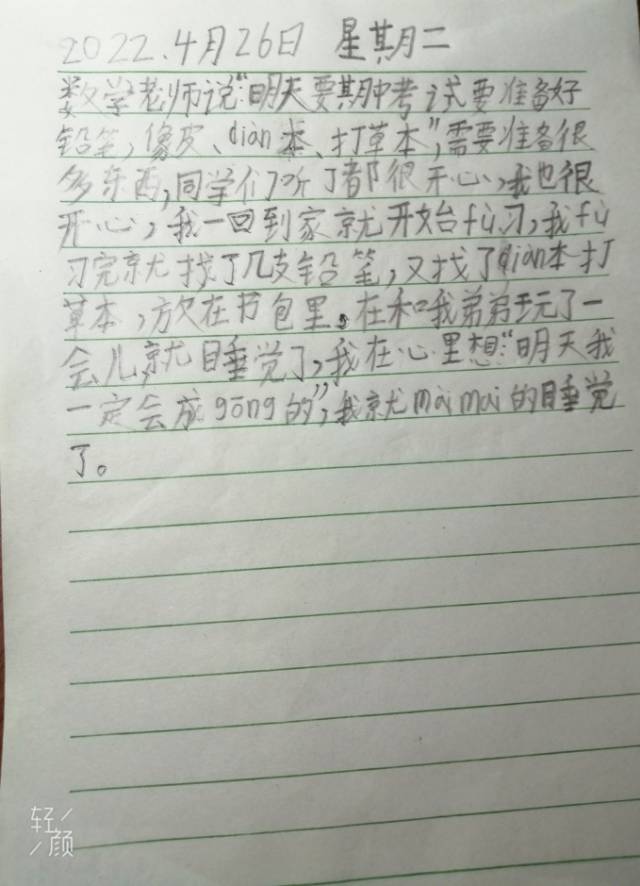 2022.4月26日 星期二
数学老师说“明天要期中考试要准备好
铅笔,像皮、diàn本、打草本”,需要准备很
多东西,同学们听了都很开心,我也很
开心,我一回到家就开始fù习,我fù
习完就找了几支铅笔,又找了diàn本打
草本,放在书包里。在和我弟弟玩了一
会儿就睡觉了,我在心里想:“明天我
一定会成gōng的”,我就mǎi mai的睡觉
了。
轻
颜